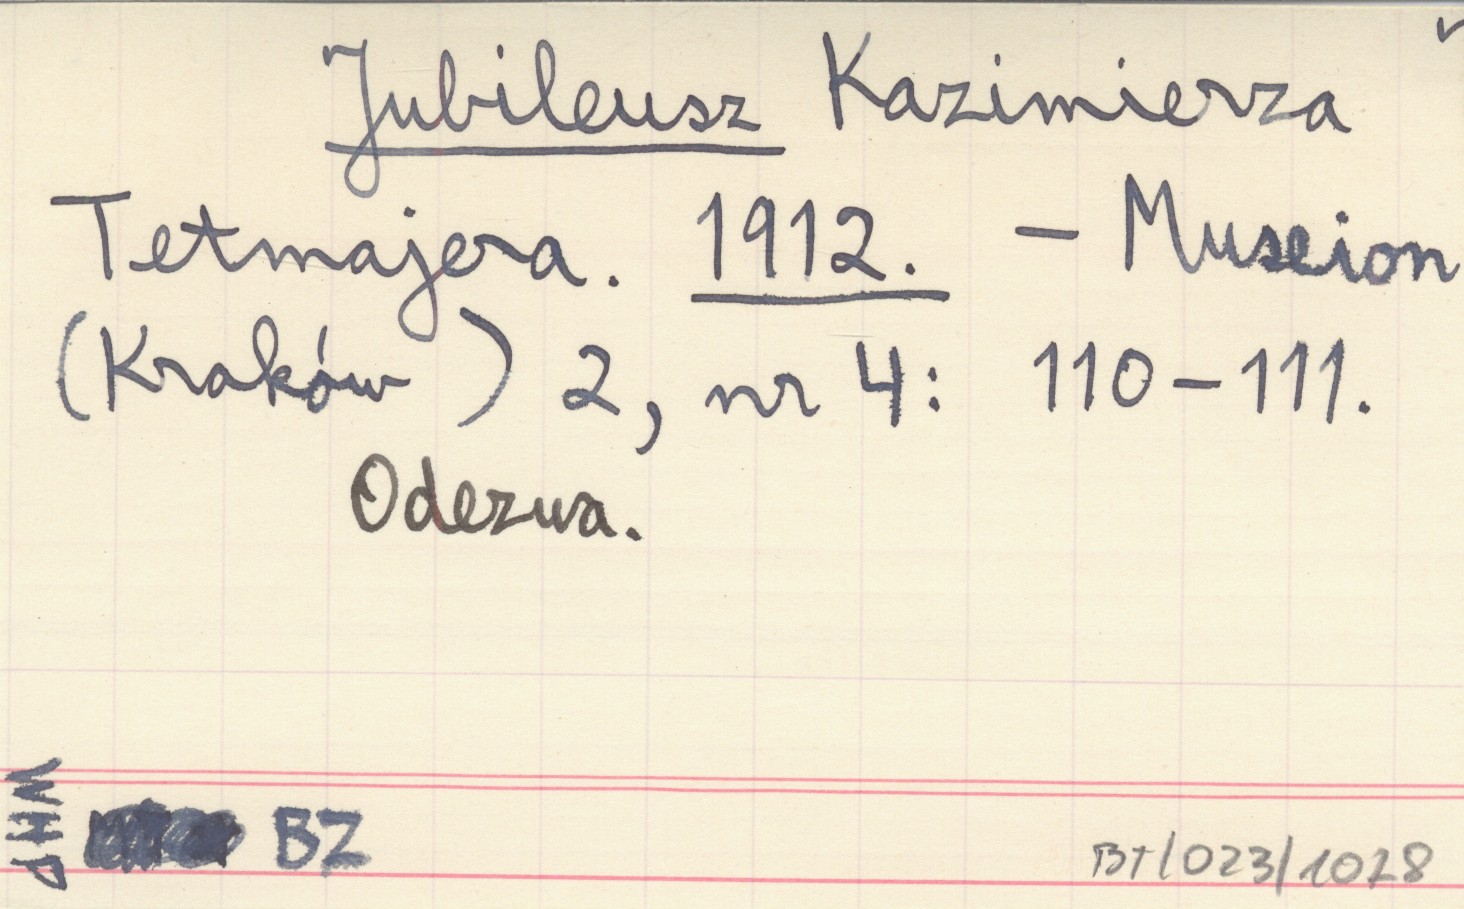 Jubileusz Kazimierza
Tetmajera. 1912. – Museion
(Kraków) 2, nr 4: 110–111.
Odezwa.
WHP
BZ
BT/023/1028